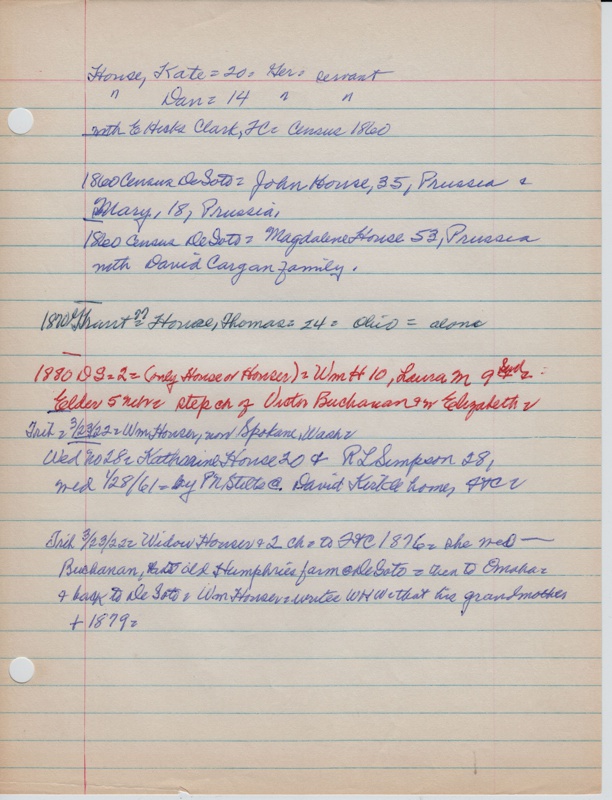 House, Kate = 20 = Ger = servant
" Dan = 14 " "
with E Hicks Clark, FC = Census 1860
1860 Census DeSoto = John House, 35, Prussia &
Mary, 18, Prussia.
1860 Census DeSoto = Magdalene House 53, Prussia
with David Cargan family.
1870 Grant ?? = House, Thomas = 24 = Ohio = alone
1880 DS = 2 = (only House or Houser) = Wm H 10, Laura M 9 =
Elder 5 = step ch of Victor Buchanan & w Elizabeth =
Trib = 3/23/22 = Wm Houser, now Spokane, Wash =
Wed No 28 = Katharine House 20 & R L Simpson 28,
wed 1/28/61 = by PM @ David home, FtC =
Trib 3/23/22 = Widow Houser & 2 ch = to FtC 1876 = she wed —
Buchanan, old Humphries farm @ DeSoto = then to Omaha =
& back to De Soto = Wm Houser = writes WHW = that his grandmother
+ 1879 =